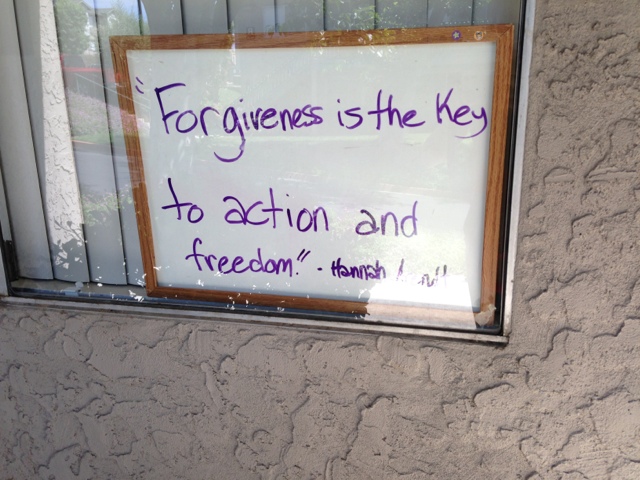 "Forgiveness is the Key
to action and
freedom." - Hannah